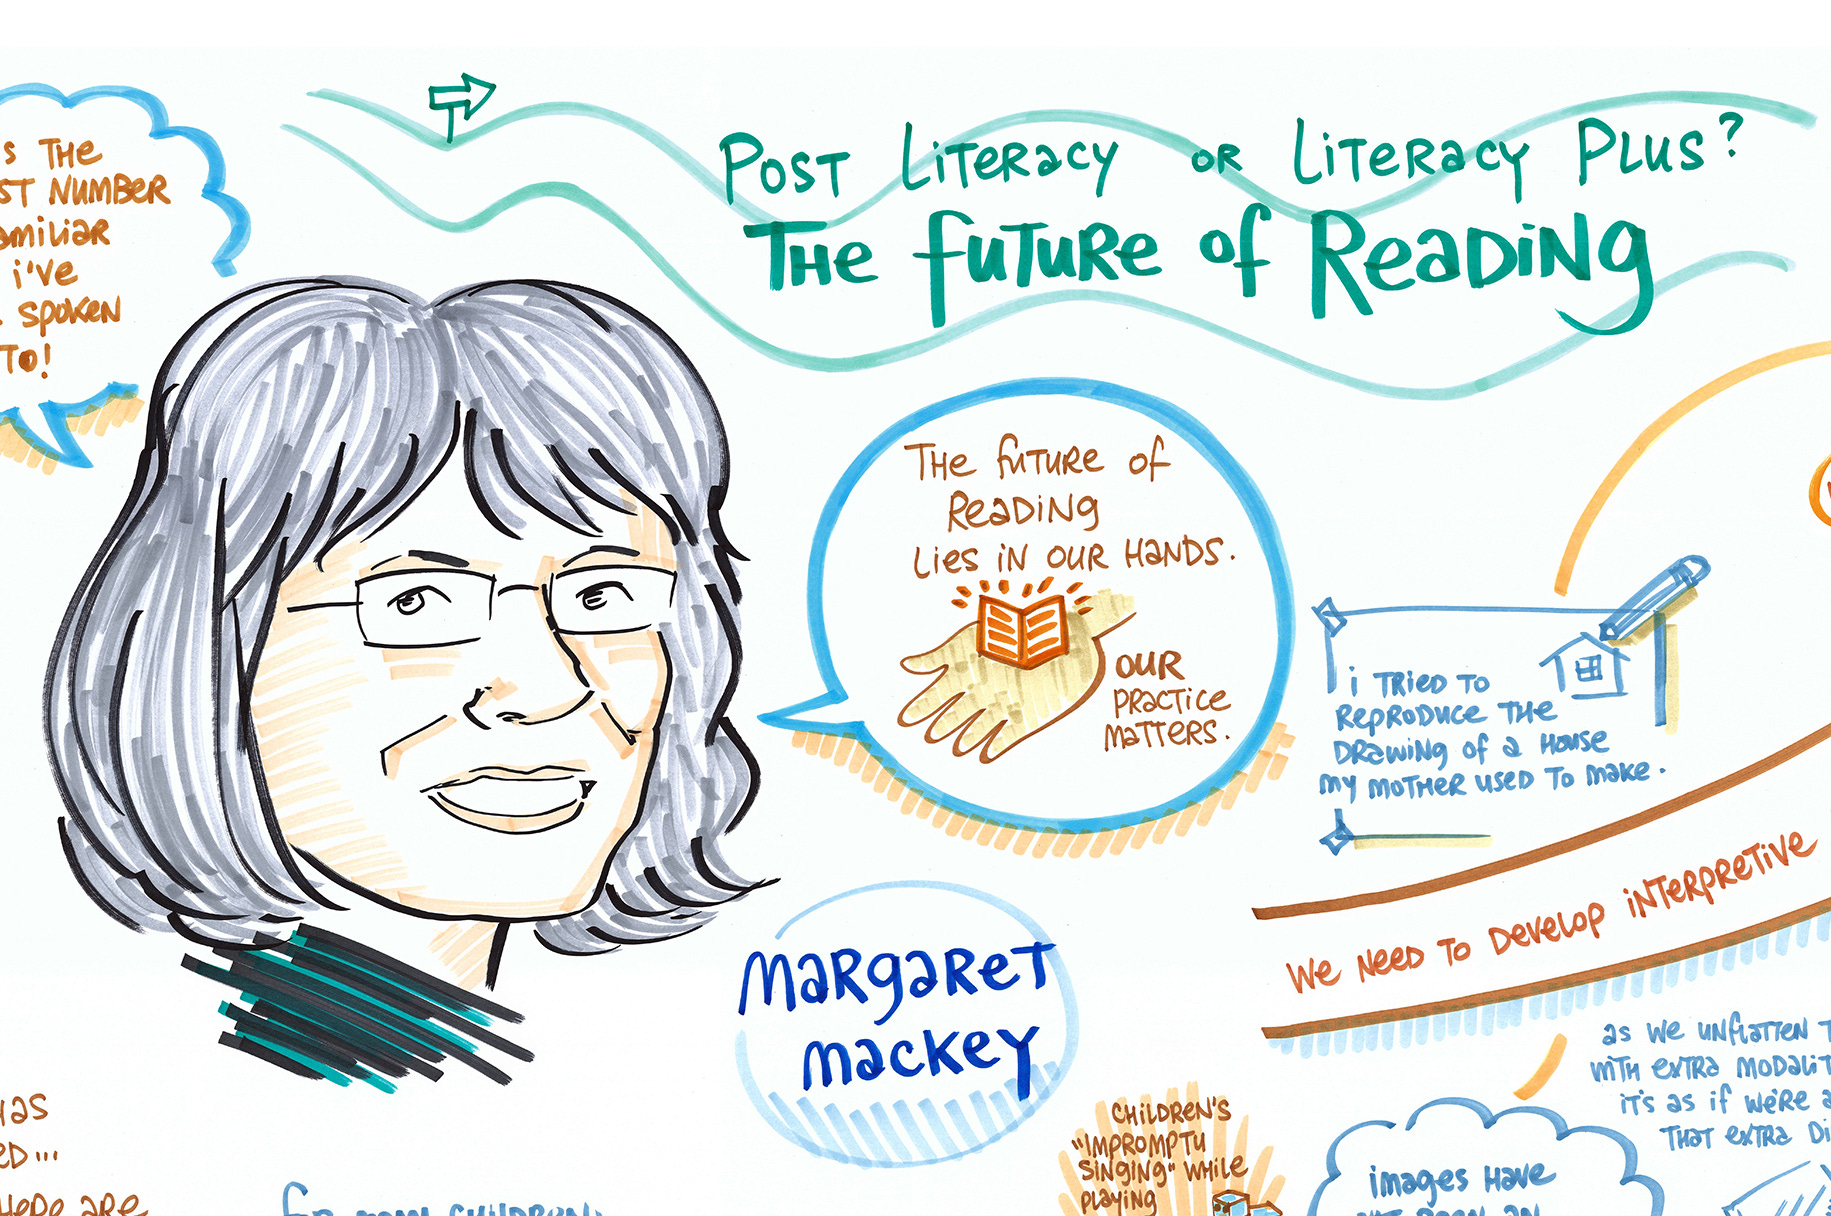 Post Literacy or Literacy Plus?
The Future of Reading
s the
st number
amiliar
i've
spoken
to!
The future of
Reading
lies in our hands.
our
practice
matters.
i tried to
reproduce the
drawing of a house
my mother used to make.
We need to develop interpretive
margaret
mackey
as we unflatten
with extra modalit
it's as if we're a
that extra di
children's
"impromptu
singing" while
playing
images have
as
ed...
here are
for many children,